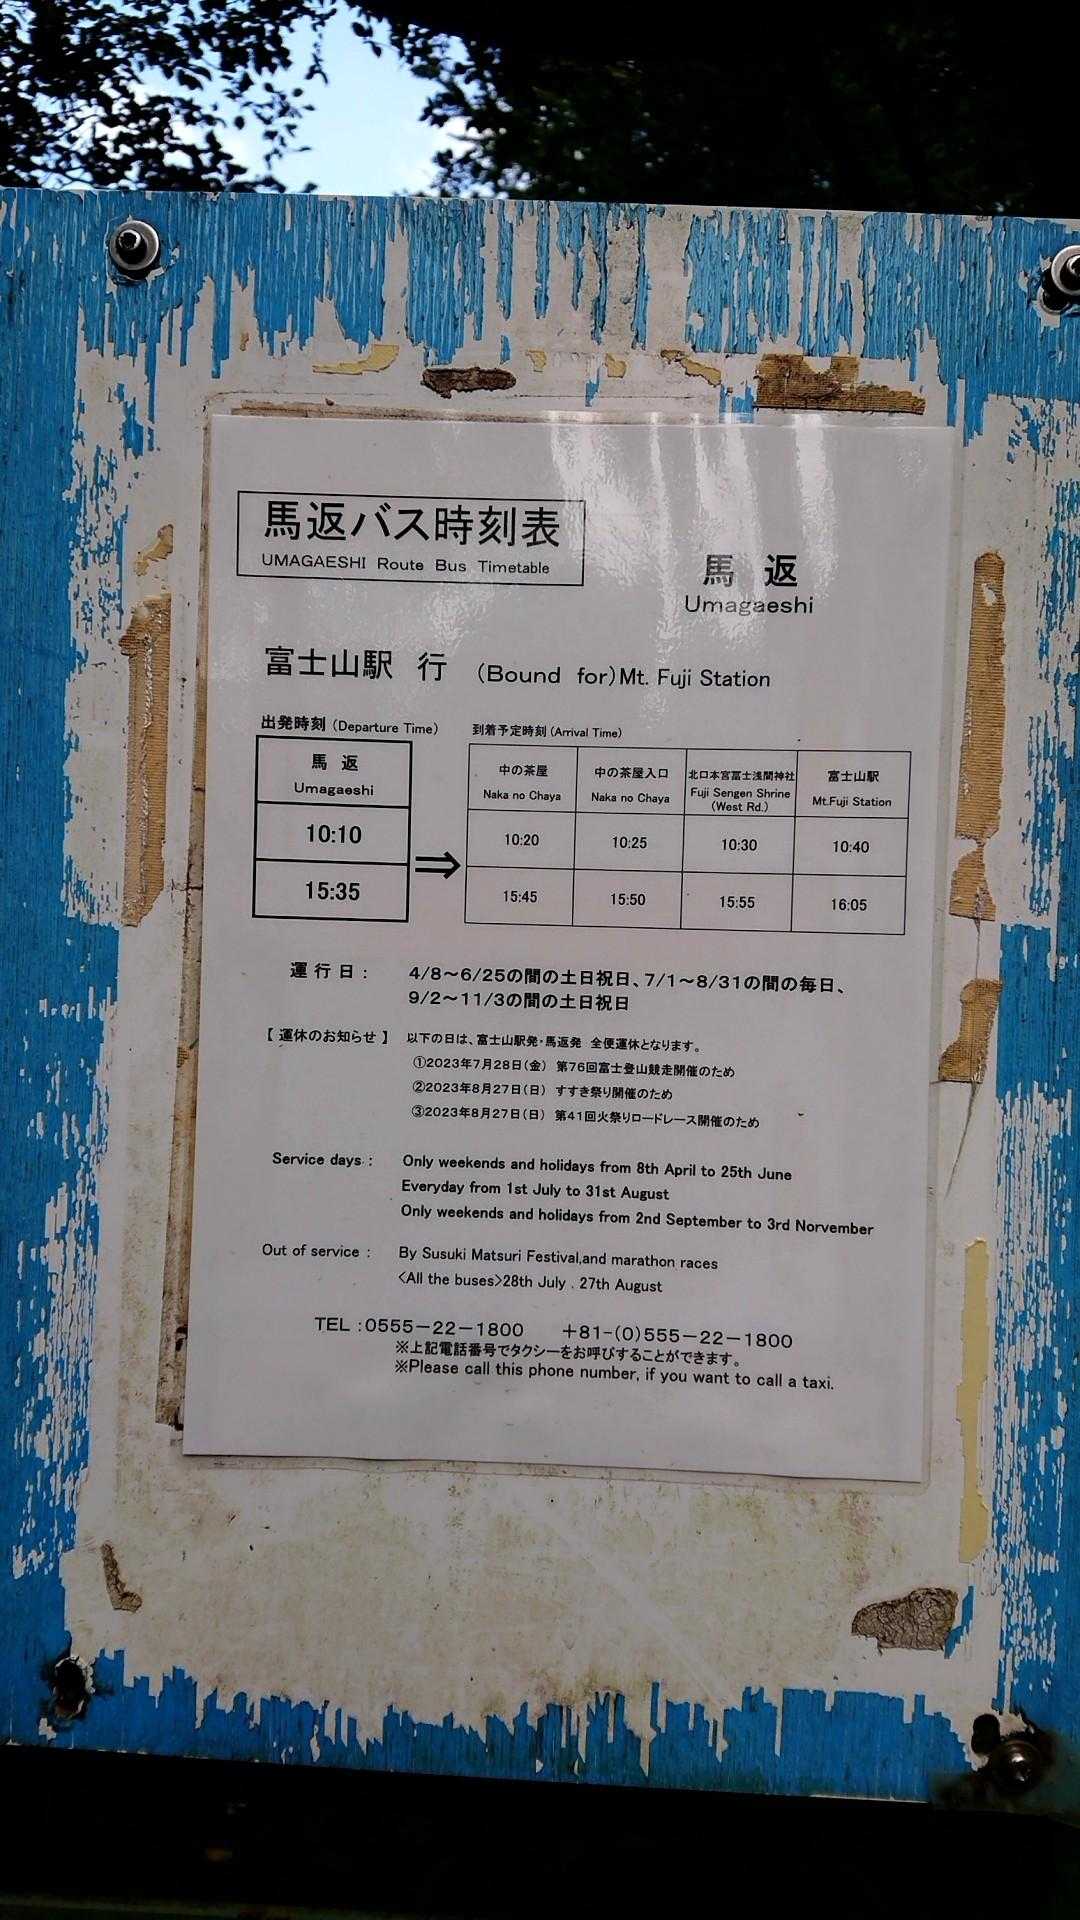 馬返バス時刻表
UMAGAESHI Route Bus Timetable
馬 返
Umagaeshi
富士山駅 行 (Bound for)Mt. Fuji Station
出発時刻 (Departure Time)
到着予定時刻 (Arrival Time)
馬 返
Umagaeshi
中の茶屋
Naka no Chaya
中の茶屋入口
Naka no Chaya
北口本宮冨士浅間神社
Fuji Sengen Shrine
(West Rd.)
富士山駅
Mt.Fuji Station
10:10 ⇒ 10:20 10:25 10:30 10:40
15:35 15:45 15:50 15:55 16:05
運 行 日 : 4/8～6/25の間の土日祝日、7/1～8/31の間の毎日、
9/2～11/3の間の土日祝日
【 運休のお知らせ 】 以下の日は、富士山駅発・馬返発 全便運休となります。
①2023年7月28日(金) 第76回富士登山競走開催のため
②2023年8月27日(日) すすき祭り開催のため
③2023年8月27日(日) 第41回火祭りロードレース開催のため
Service days : Only weekends and holidays from 8th April to 25th June
Everyday from 1st July to 31st August
Only weekends and holidays from 2nd September to 3rd Norvember
Out of service : By Susuki Matsuri Festival,and marathon races
<All the buses>28th July . 27th August
TEL :0555－22－1800 +81-(0)555－22－1800
※上記電話番号でタクシーをお呼びすることができます。
※Please call this phone number, if you want to call a taxi.